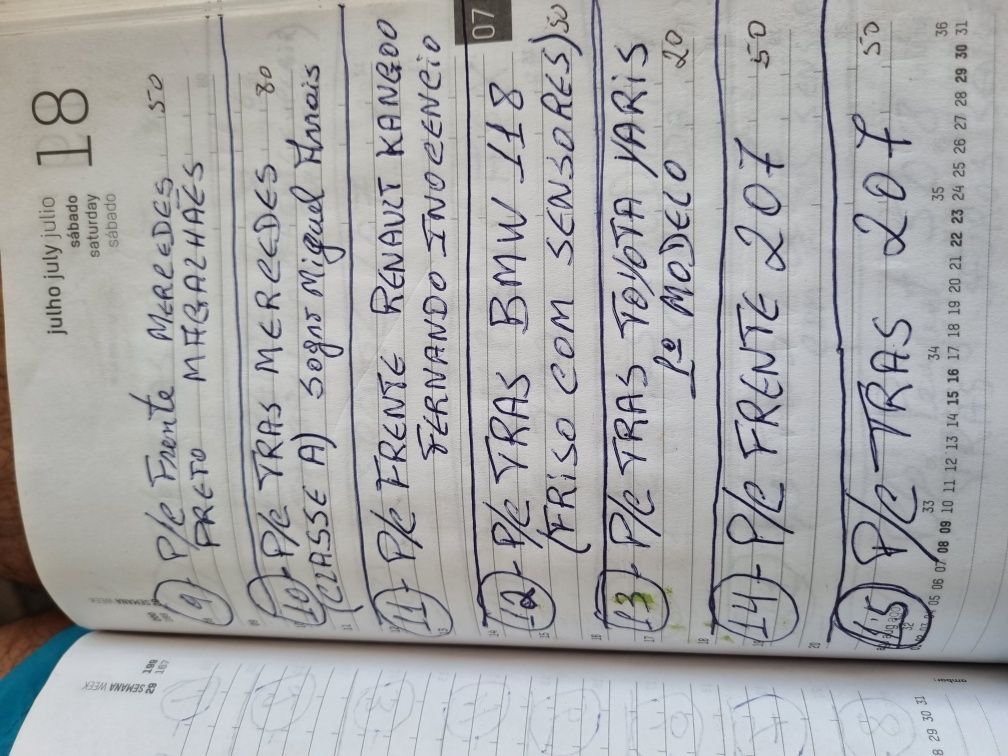 julho july julio
sábado
saturday
sábado
18
9) P/C Frente MERCEDES 50
PRETO MAGALHAES
10)- P/C TRAS MERCEDES 80
(CLASSE A) Sogro Miguel
11)- P/C FRENTE RENAULT KANGOO
FERNANDO INOCENCIO
07
12)- P/C TRAS BMW 118
(FRISO COM SENSORES) 50
13)- P/C TRAS TOYOTA YARIS
1º MODELO 20
14)- P/C FRENTE 207 50
15) P/C TRAS 207 50
33 34 35 36
05 06 07 08 09 10 11 12 13 14 15 16 17 18 19 20 21 22 23 24 25 26 27 28 29 30 31
29 SEMANA WEEK
199
167
ambar
8 29 30 31